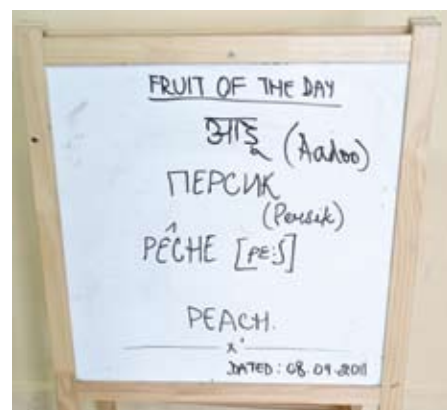 FRUIT OF THE DAY
आड़ू (Aadoo)
ПЕРСИК
(Persik)
PÊCHE [pe:ʃ]
PEACH.
x
DATED: 08.09.2011